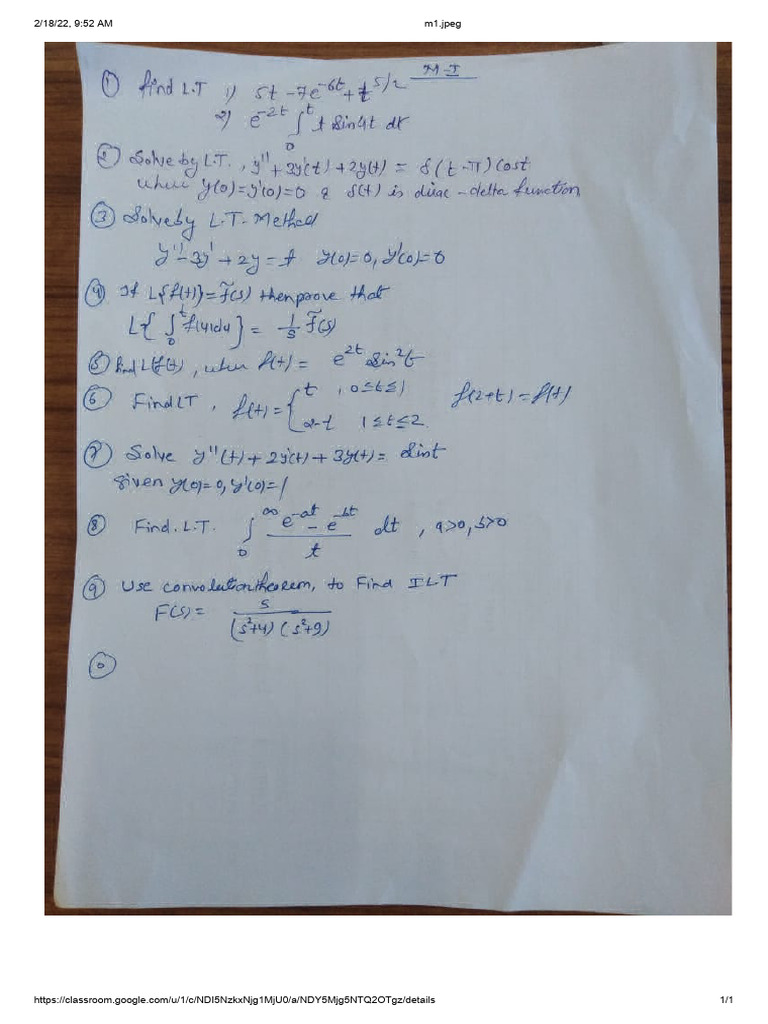 2/18/22, 9:52 AM m1.jpeg
M-I
① Find L.T 1) 5t - 7e^{-6t} + t^{5/2}
2) e^{-2t} ∫_0^t t Sin4t dt
② Solve by L.T., y'' + 3y'(t) + 2y(t) = δ(t-π) Cost
where y(0) = y'(0) = 0 & δ(t) is dirac-delta function
③ Solve by L.T. Method
y'' - 3y' + 2y = t y(0) = 0, y'(0) = 0
④ If L{f(t)} = f̃(s) then prove that
L{∫_0^t f(u)du} = 1/s f̃(s)
⑤ find L(f(t), when f(t) = e^{2t} Sin^2t
⑥ Find LT, f(t) = { t , 0≤t≤1 f(2+t) = f(t)
2-t 1≤t≤2
⑦ Solve y''(t) + 2y'(t) + 3y(t) = Sint
given y(0) = 0, y'(0) = 1
⑧ Find. L.T. ∫_0^∞ (e^{-at} - e^{-bt})/t dt , a>0, b>0
⑨ Use convolution theorem, to Find ILT
F(s) = s/((s²+4)(s²+9))
⓪
https://classroom.google.com/u/1/c/NDI5NzkxNjg1MjU0/a/NDY5Mjg5NTQ2OTgz/details 1/1